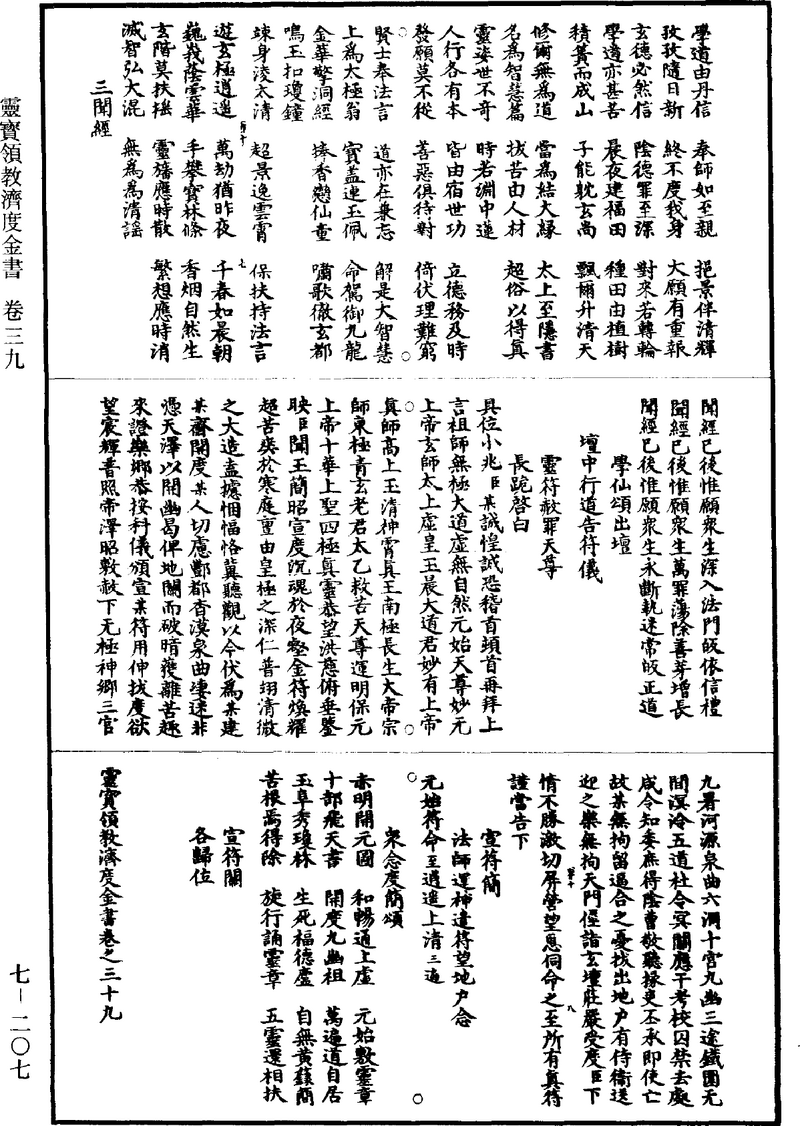 學道由丹信　奉師如至親　挹景伴清輝
孜孜隨日新　終不度我身　大願有重報
玄德必然信　陰德罪至深　對來若轉輪
學道亦甚苦　晨夜建福田　種田由植樹
積簣而成山　子能耽玄尚　飄爾升清天
修爾無為道　當為結大緣　太上至隱書
名為智慧篇　拔苦由人材　超俗以得真
靈姿世不奇　時若淵中蓮
人行各有本　皆由宿世功　立德務及時
發願莫不從　善惡俱待對　倚伏理難窮
賢士奉法言　道亦在兼忘　解是大智慧
上為太極翁　寶蓋連玉佩　命駕御九龍
金華擎洞經　捧香戀仙童　嘯歌徹玄都
鳴玉扣瓊鐘
竦身凌太清　超景逸雲霄　保扶持法言
遊玄極逍遥　萬劫猶昨夜　千春如晨朝
巍峩蔭雲華　手攀寶林條　香烟自然生
玄階莫扶搖　靈旛應時散　繁想應時消
滅智弘大混　無為為清謡
三聞經
聞經已後惟願衆生深入法門皈依信禮
聞經已後惟願衆生萬罪蕩除善芽增長
聞經已後惟願衆生永斷執迷常皈正道
學仙頌出壇
壇中行道告符儀
靈符赦罪天尊
長跪啓白
具位小兆臣某誠惶誠恐稽首頓首再拜上
言祖師無極大道虛無自然元始天尊妙元
上帝玄師太上虛皇玉晨大道君妙有上帝
真師高上玉清神霄真王南極長生大帝宗
師東極青玄老君太乙救苦天尊運明保元
上帝十華上聖四極真靈恭望洪慈俯垂鑒
映臣聞玉簡昭宣度沉魂於夜壑金符煥耀
超苦爽於寒庭亶由皇極之深仁普翊清微
之大造盍攄悃愊恪冀聽觀以今伏為某建
某齋開度某人切慮酆都杳漠泉曲悽迷非
憑天澤以開幽曷俾地關而破暗獲離苦趣
來證樂鄉恭按科儀頒宣某符用伸拔度欲
望宸輝普照帝澤昭敷赦下无極神鄉三官
九署河源泉曲六洞十宫九幽三途鐵圍无
間溟泠五道社令冥關應干考校囚禁去處
咸令知委庶得陰曹敬聽掾吏丕承即使亡
故某無拘留逼合之憂拔出地户有侍衛送
迎之樂無拘天門徑詣玄壇莊嚴受度臣下
情不勝激切屏營望恩伺命之至所有真符
謹當告下
宣符簡
法師運神遣符望地户念
元始符命至逍遥上清三遍
衆念度簡頌
赤明開元圖　和暢通上虛　元始敷靈章
十部飛天書　開度九幽祖　萬遍道自居
玉阜秀瓊林　生死福德廬　自無黄籙簡
苦根焉得除　旋行誦靈章　五靈還相扶
宣符關
各歸位
靈寶領教濟度金書卷之三十九
靈寶領教濟度金書　卷三九
七－二〇七